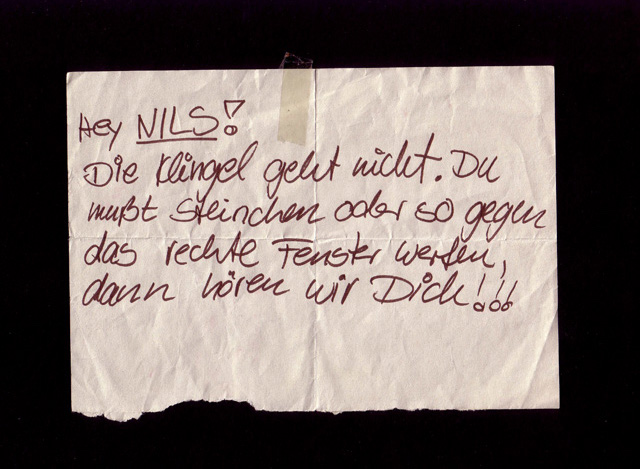 Hey NILS!
Die Klingel geht nicht. Du
mußt Steinchen oder so gegen
das rechte Fenster werfen,
dann hören wir Dich!!!